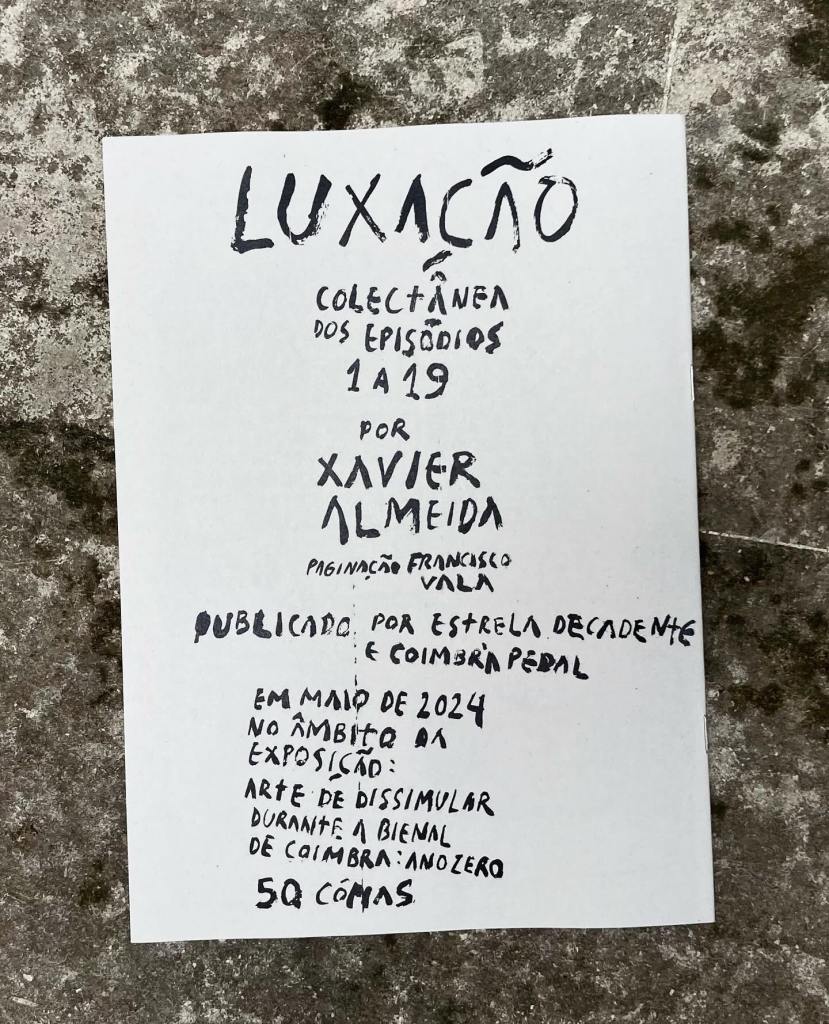 LUXAÇÃO
COLECTÂNEA
DOS EPISÓDIOS
1 A 19
POR
XAVIER
ALMEIDA
PAGINAÇÃO FRANCISCO
VALA
PUBLICADO POR ESTRELA DECADENTE
E COIMBRA PEDAL
EM MAIO DE 2024
NO ÂMBITO DA
EXPOSIÇÃO:
ARTE DE DISSIMULAR
DURANTE A BIENAL
DE COIMBRA: ANOZERO
50 CÓPIAS